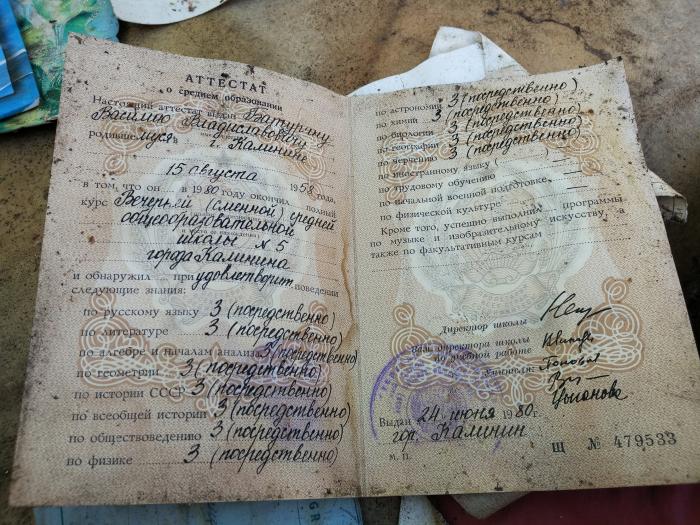 АТТЕСТАТ
о среднем образовании
Настоящий аттестат выдан Батурину
Василию Владиславовичу
родившемуся в г. Калинине
15 августа 1958 года,
в том, что он в 1980 году окончил полный
курс Вечерней (сменной) средней
общеобразовательной
школы № 5
города Калинина
и обнаружил при удовлетворит. поведении
следующие знания:
по русскому языку 3 (посредственно)
по литературе 3 (посредственно)
по алгебре и началам анализа 3 (посредственно)
по геометрии 3 (посредственно)
по истории СССР 3 (посредственно)
по всеобщей истории 3 (посредственно)
по обществоведению 3 (посредственно)
по физике 3 (посредственно)
по астрономии 3 (посредственно)
по химии 3 (посредственно)
по биологии 3 (посредственно)
по географии 3 (посредственно)
по черчению 3 (посредственно)
по иностранному языку ( )
по трудовому обучению
по начальной военной подготовке
по физической культуре
Кроме того, успешно выполнил программы
по музыке и изобразительному искусству, а
также по факультативным курсам
Директор школы
Зам. директора школы
по учебной работе
Учителя:
Выдан 24 июня 1980 г.
гор. Калинин
М. П.
Щ № 479533